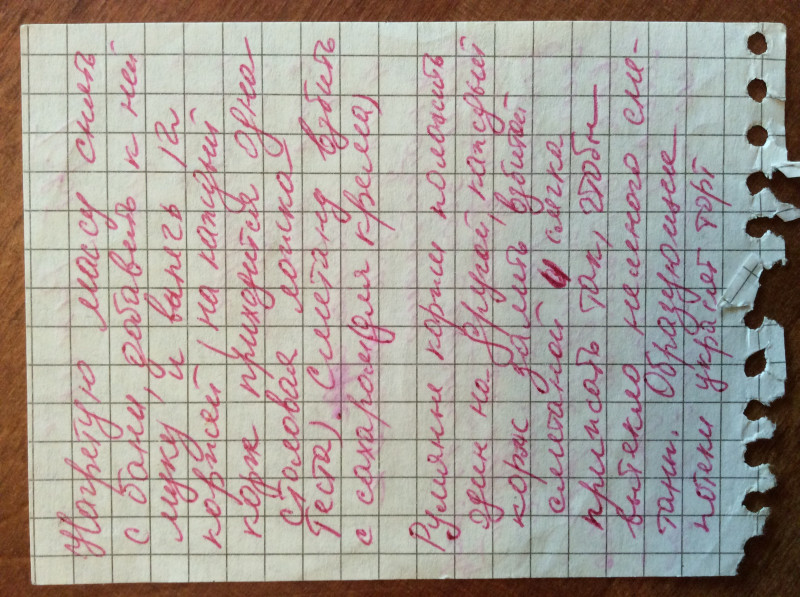 Нагретую массу снять
с бани, добавить к ней
муку и выпечь 12
коржей (на каждый
корж приходится одна
столовая ложка
теста). Сметану взбить
с сахаром (для крема)
Румяные коржи положить
один на другой, каждый
корж залить взбитой
сметаной и слегка
приписать так, чтобы
вытекло немного сме-
таны. Образующиеся
потеки украсят торт